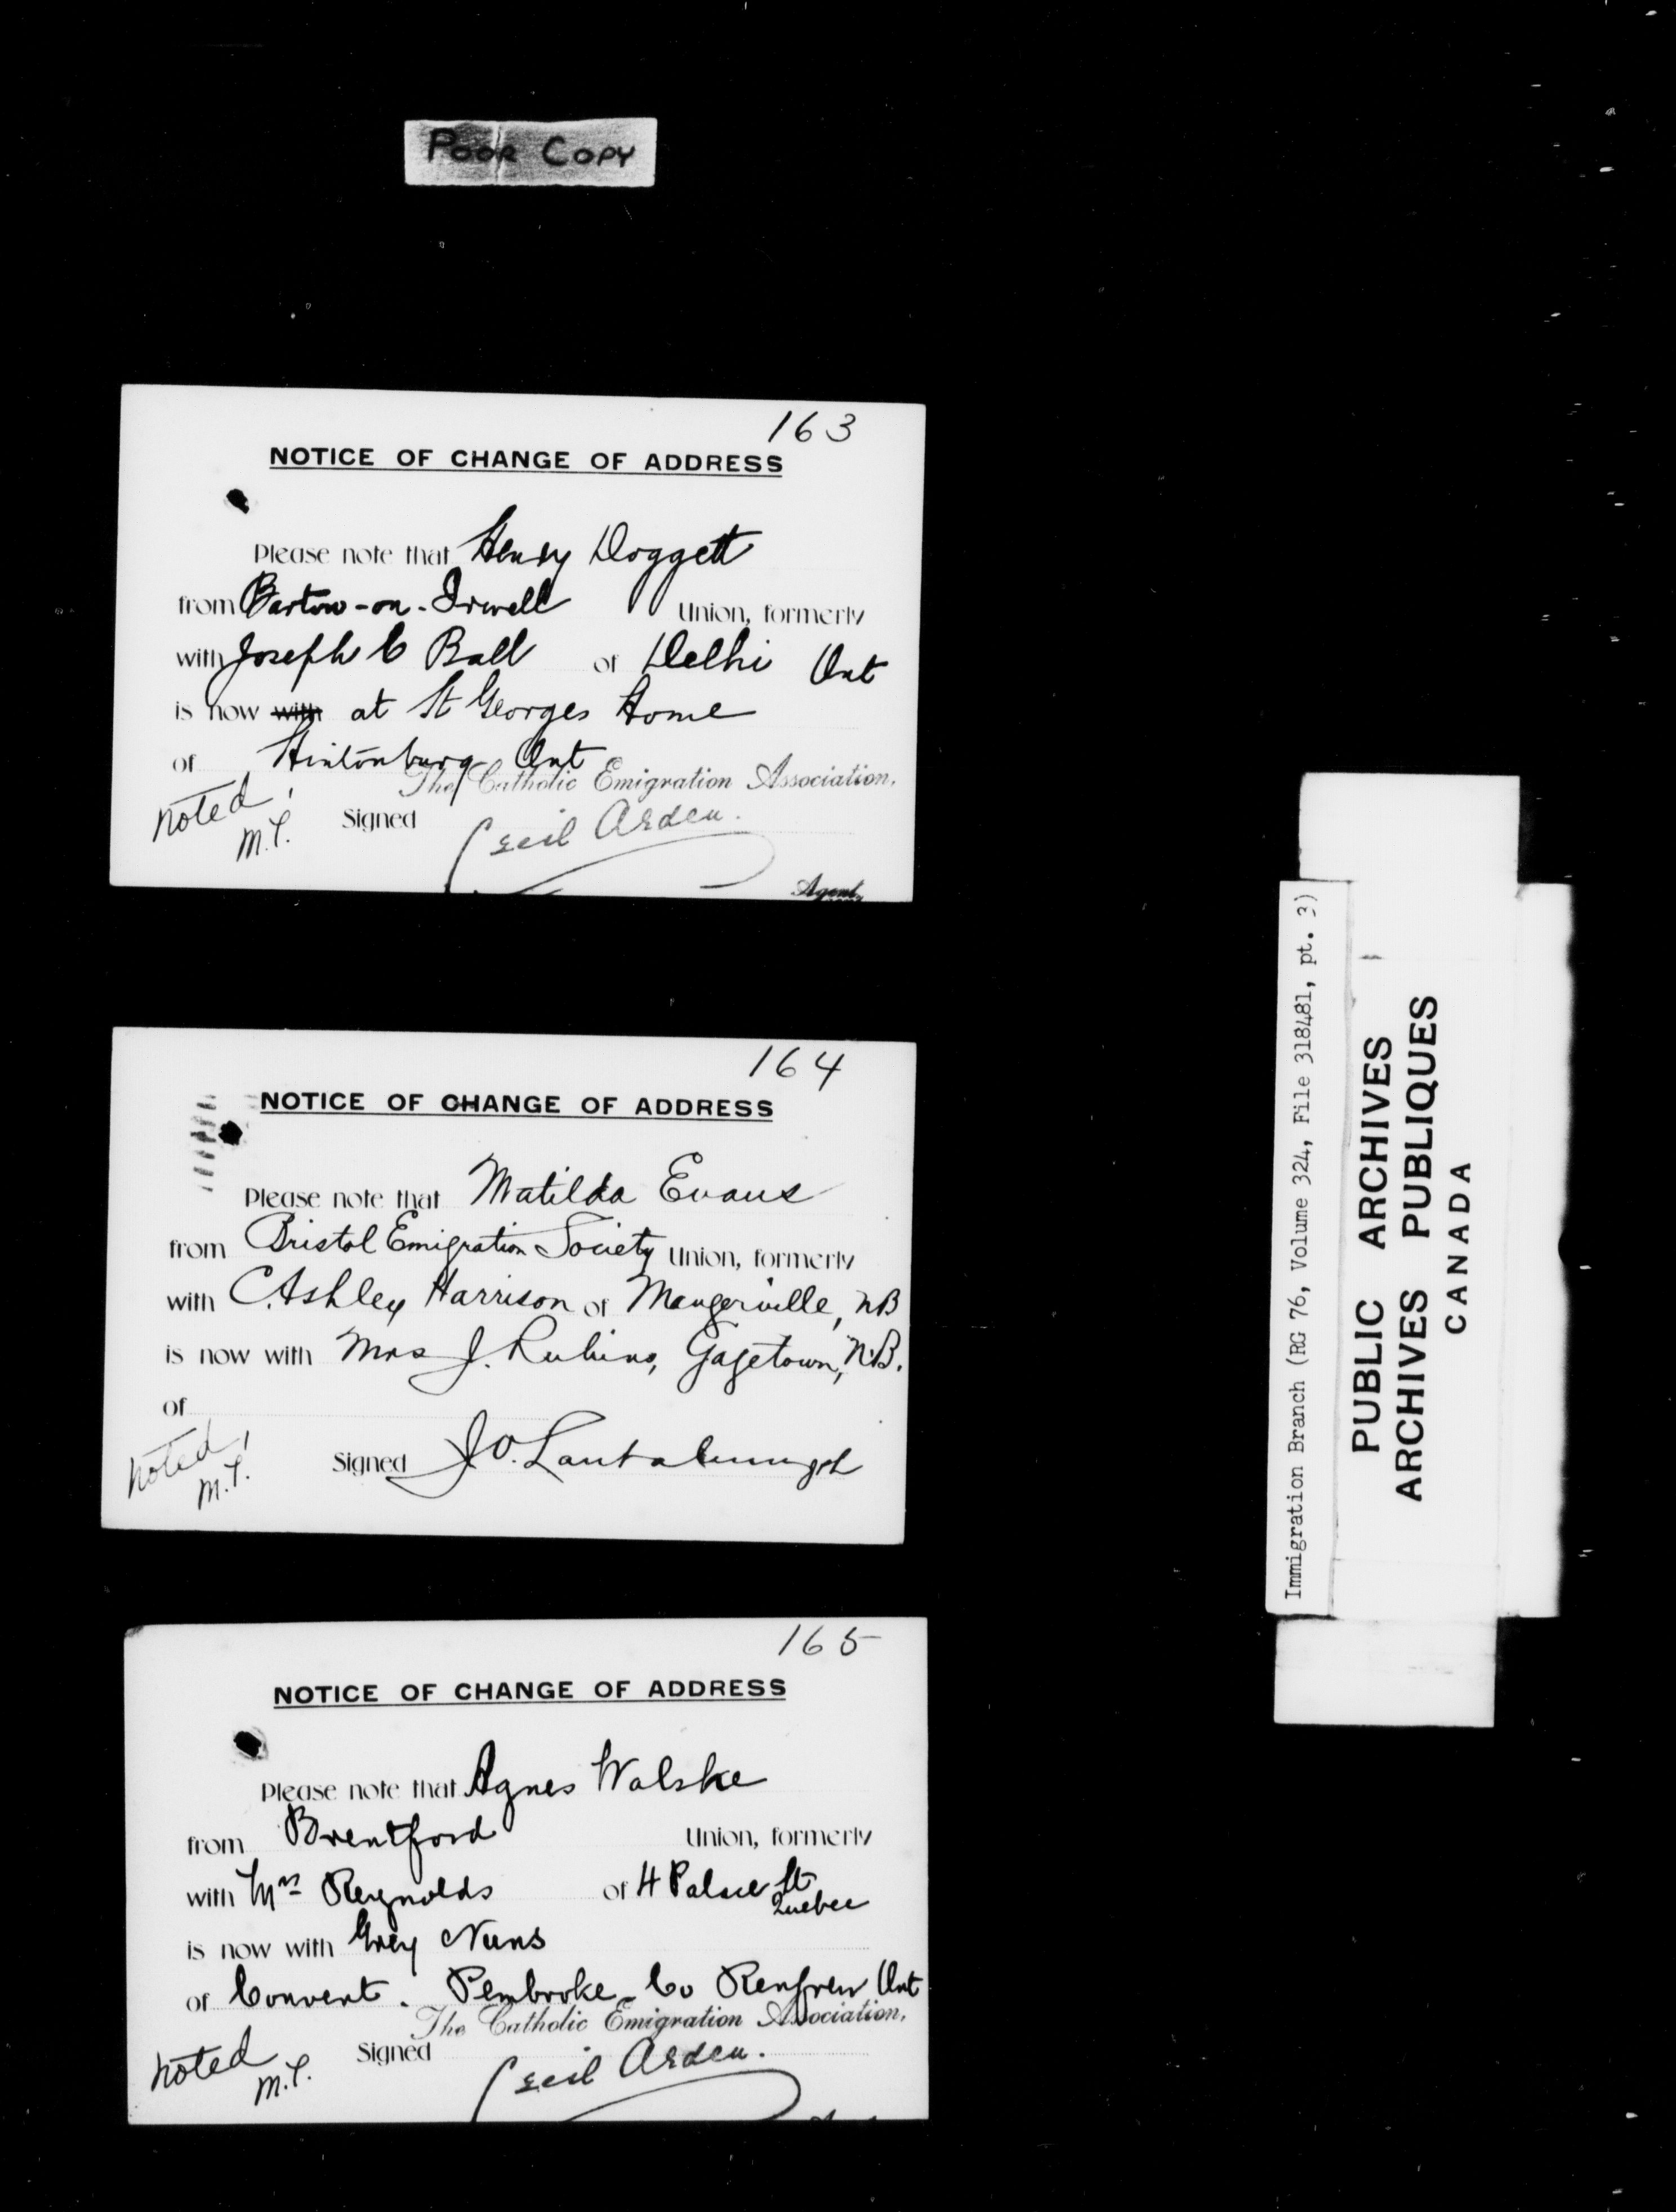 POOR COPY
163
NOTICE OF CHANGE OF ADDRESS
Please note that Henry Doggett
from Barton-on-Irwell Union, formerly
with Joseph C Ball of Delhi Ont
is now with at St Georges Home
of Hintonburg Ont
The Catholic Emigration Association,
noted! M.T.
Signed Cecil Arden.
Agent
164
NOTICE OF CHANGE OF ADDRESS
Please note that Matilda Evans
from Bristol Emigration Society Union, formerly
with C. Ashley Harrison of Maugerville, NB
is now with Mrs J. Rubins, Gagetown, N.B.
of
noted! M.T.
Signed J.O.
165
NOTICE OF CHANGE OF ADDRESS
Please note that Agnes Walske
from Brentford Union, formerly
with Mrs Reynolds of 4 Palace St Quebec
is now with Grey Nuns
of Convent. Pembroke Co Renfrew Ont
The Catholic Emigration Association,
noted M.T.
Signed Cecil Arden.
Immigration Branch (RG 76, Volume 324, File 318481, pt. 3)
PUBLIC ARCHIVES
ARCHIVES PUBLIQUES
CANADA